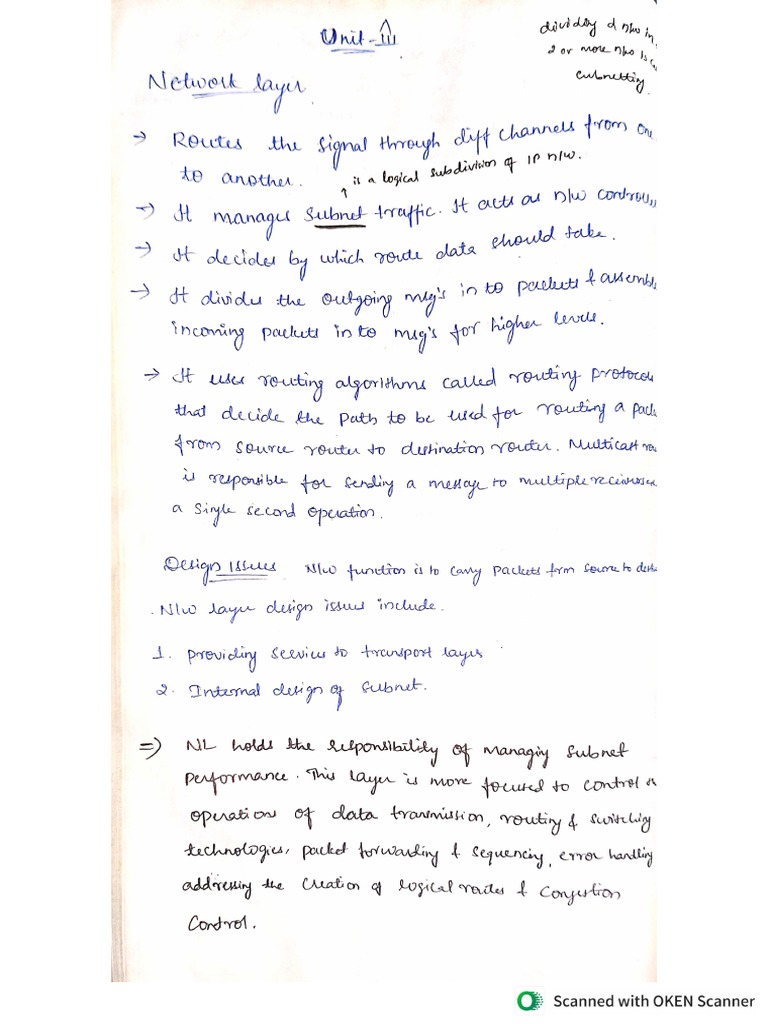 Unit-III
dividing a n/w in
2 or more n/w is
subnetting.
Network layer
→ Routes the signal through diff channels from one
to another.
is a logical subdivision of IP n/w.
→ It manages subnet traffic. It acts as n/w controll
→ It decides by which route data should take.
→ It divides the outgoing msg's in to packets & assemble
incoming packets in to msg's for higher levels.
→ It uses routing algorithms called routing protocols
that decide the path to be used for routing a pack
from source router to destination router. Multicast rou
is responsible for sending a message to multiple receivers
a single second operation.
Design issues N/w function is to carry packets from source to dest
N/w layer design issues include.
1. providing services to transport layer
2. Internal design of subnet.
⇒ NL holds the responsibility of managing subnet
performance. This layer is more focused to control
operations of data transmission, routing & switching
technologies, packet forwarding & sequencing, error handling
addressing the creation of logical routes & congestion
control.
Scanned with OKEN Scanner